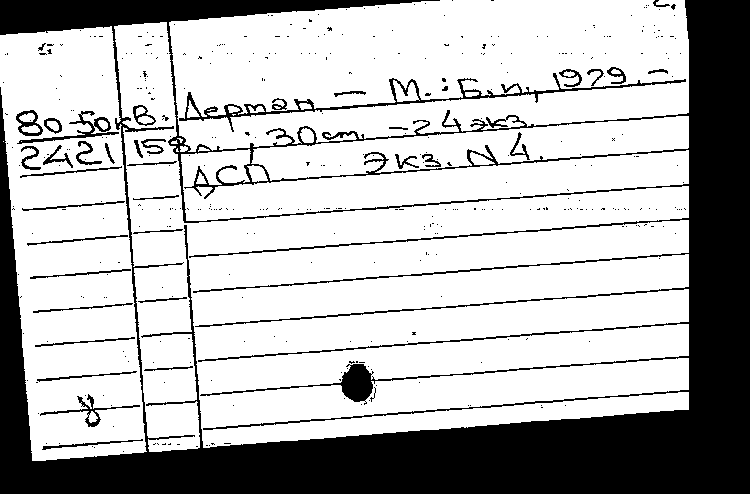 2.
Лерман. — М.: Б.и., 1979. —
80-50кв.
158л. ; 30 см. — 24 экз.
2421
ДСП. Экз. N 4.